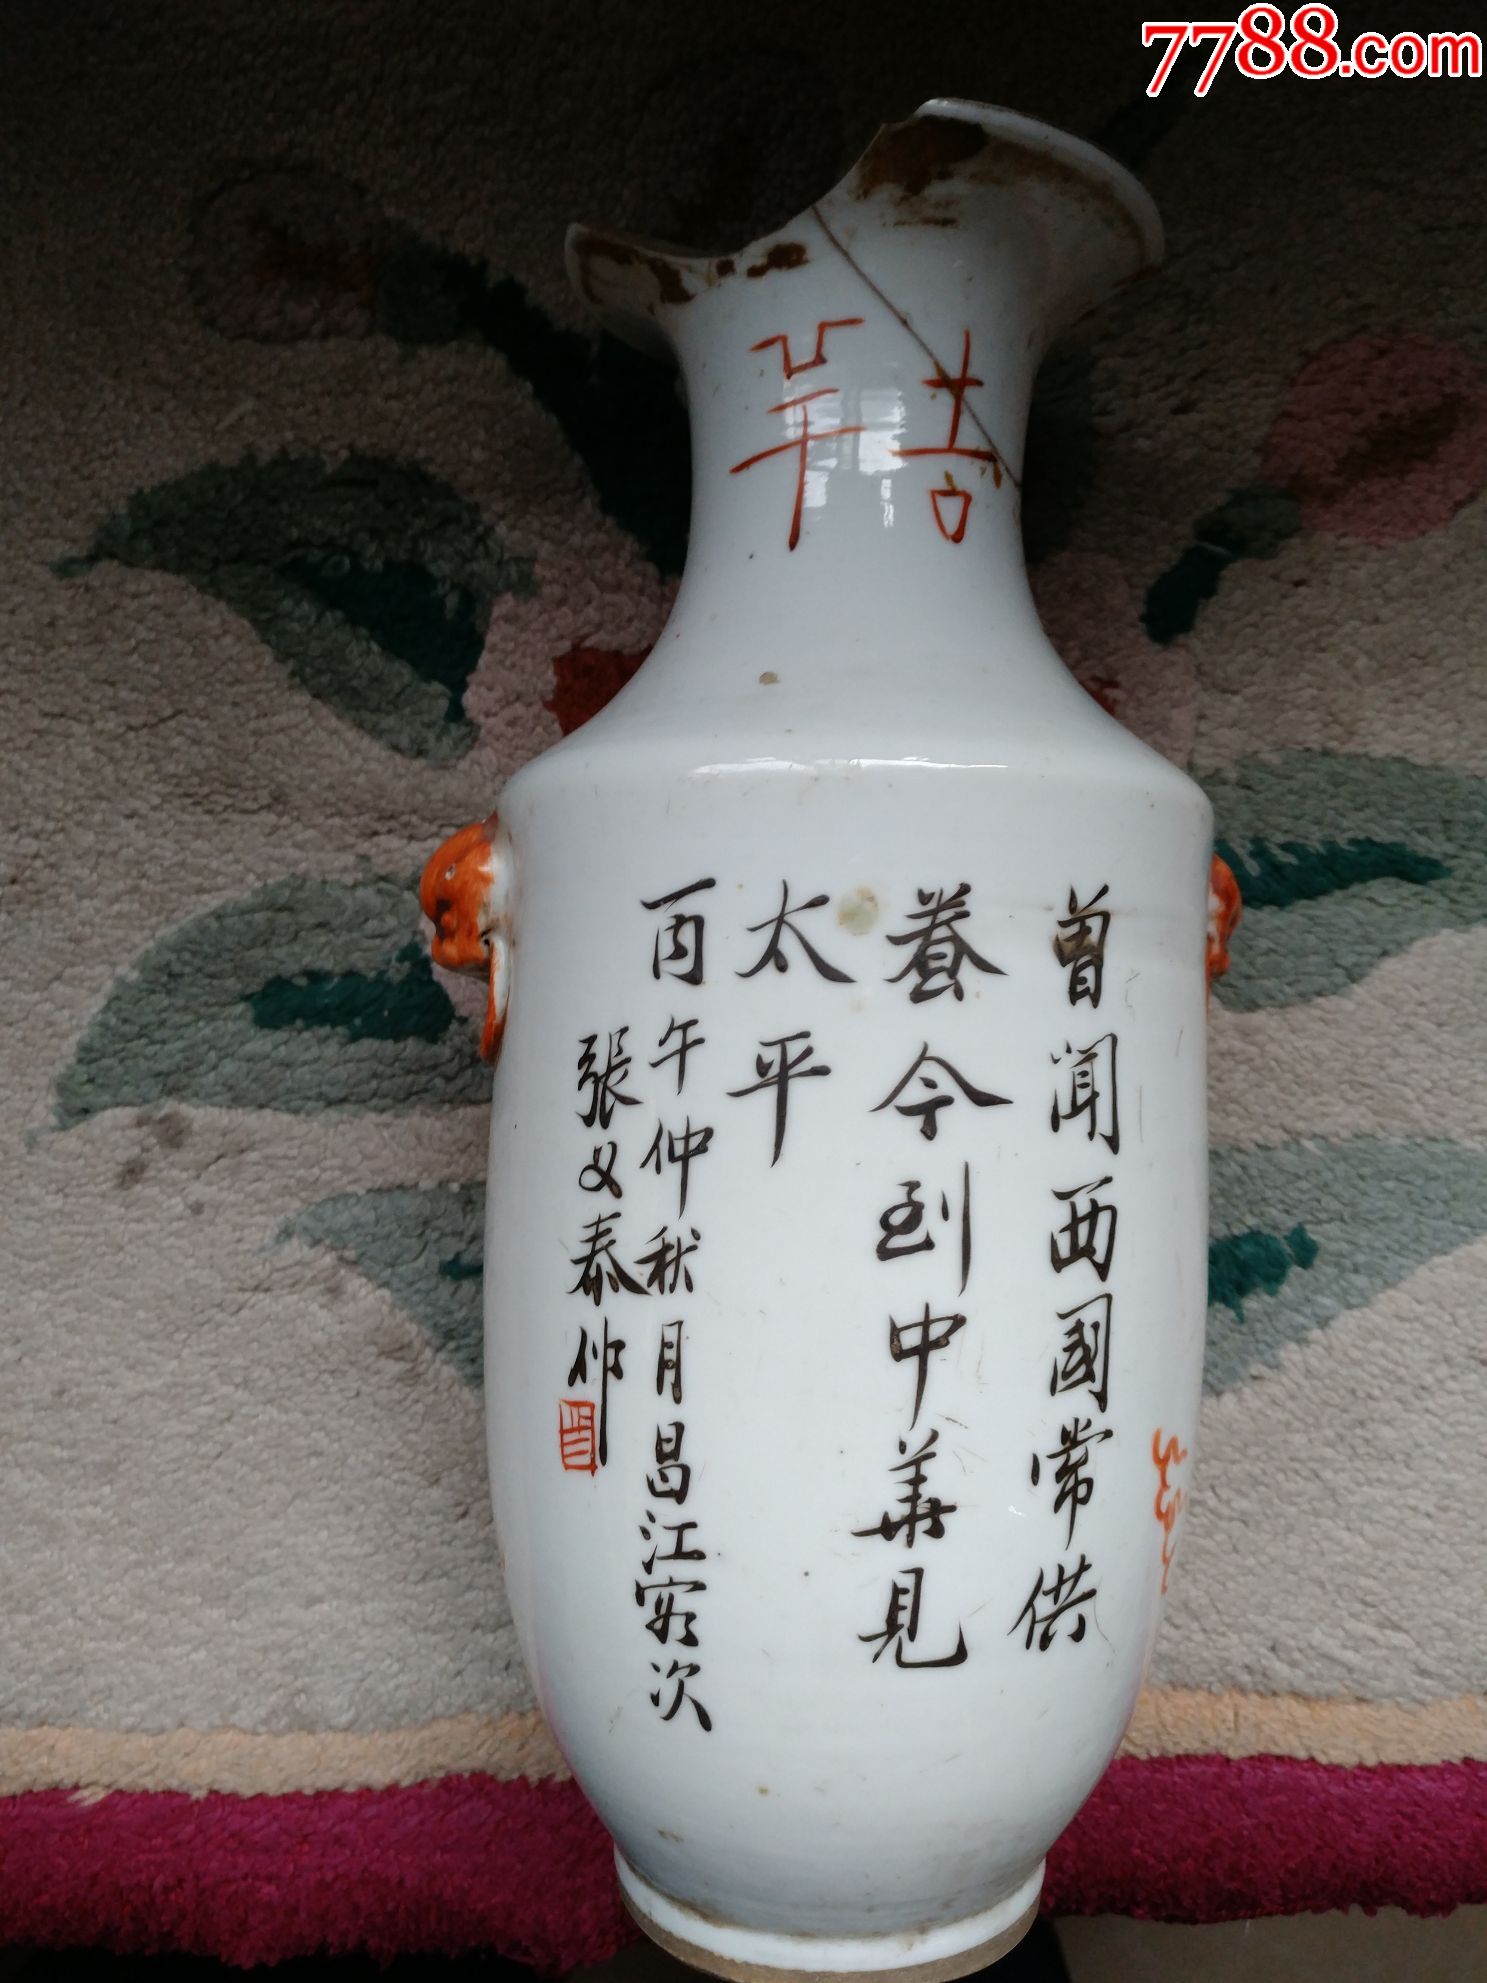 7788.com
曾聞西國常供
養今到中華見
太平
丙午仲秋月昌江客次
張义泰作